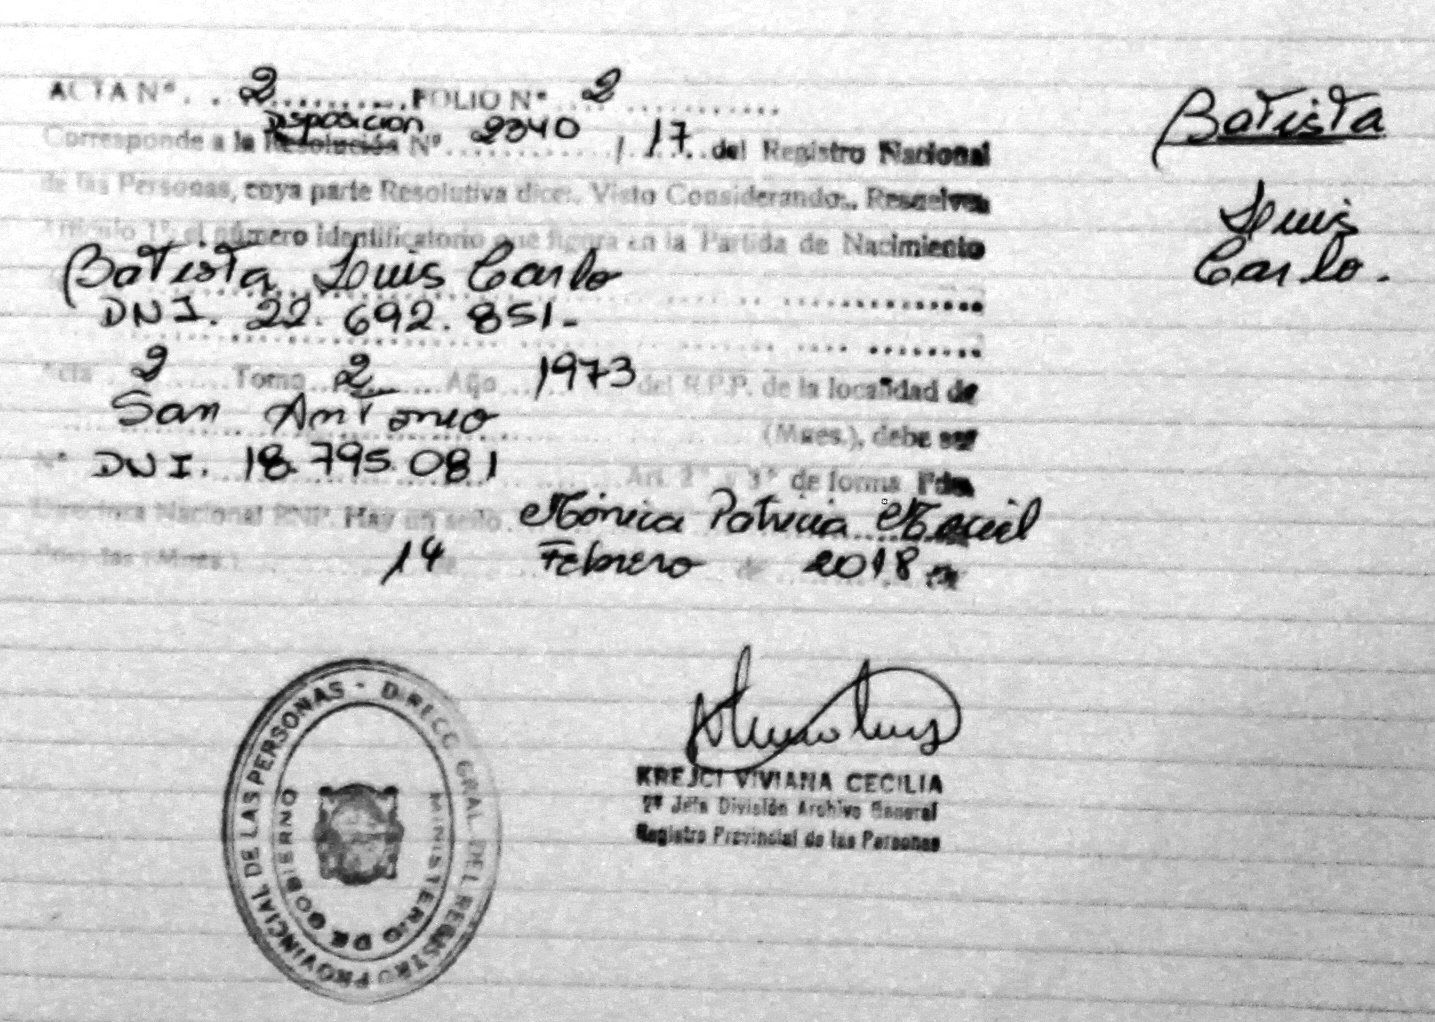 ACTA Nº . . 2 . . . . . . . . . FOLIO Nº . . 2 . . . . . . . . . . .
Disposicion
Corresponde a la Resolución Nº . . 2340 / 17 . . del Registro Nacional
de las Personas, cuya parte Resolutiva dice:. Visto Considerando:. Resuelve:
Artículo 1º el número identificatorio que figura en la Partida de Nacimiento
Batista Luis Carlo
DNI. 22.692.851-
Acta 2 Tomo 2 Año 1973 del R.P.P. de la localidad de
San Antonio
(Mnes.), debe ser
Nº DNI. 18.795.081 Art. 2º y 3º de forma Fdo.
Directora Nacional RNP. Hay un sello. Mónica Patricia Maciel
Pdas. (Mnes.) 14 Febrero de 2018
Batista
Luis
Carlo.
KREJCI VIVIANA CECILIA
2º Jefa División Archivo General
Registro Provincial de las Personas
DIRECC. GRAL. DEL REGISTRO PROVINCIAL DE LAS PERSONAS -
MINISTERIO DE GOBIERNO